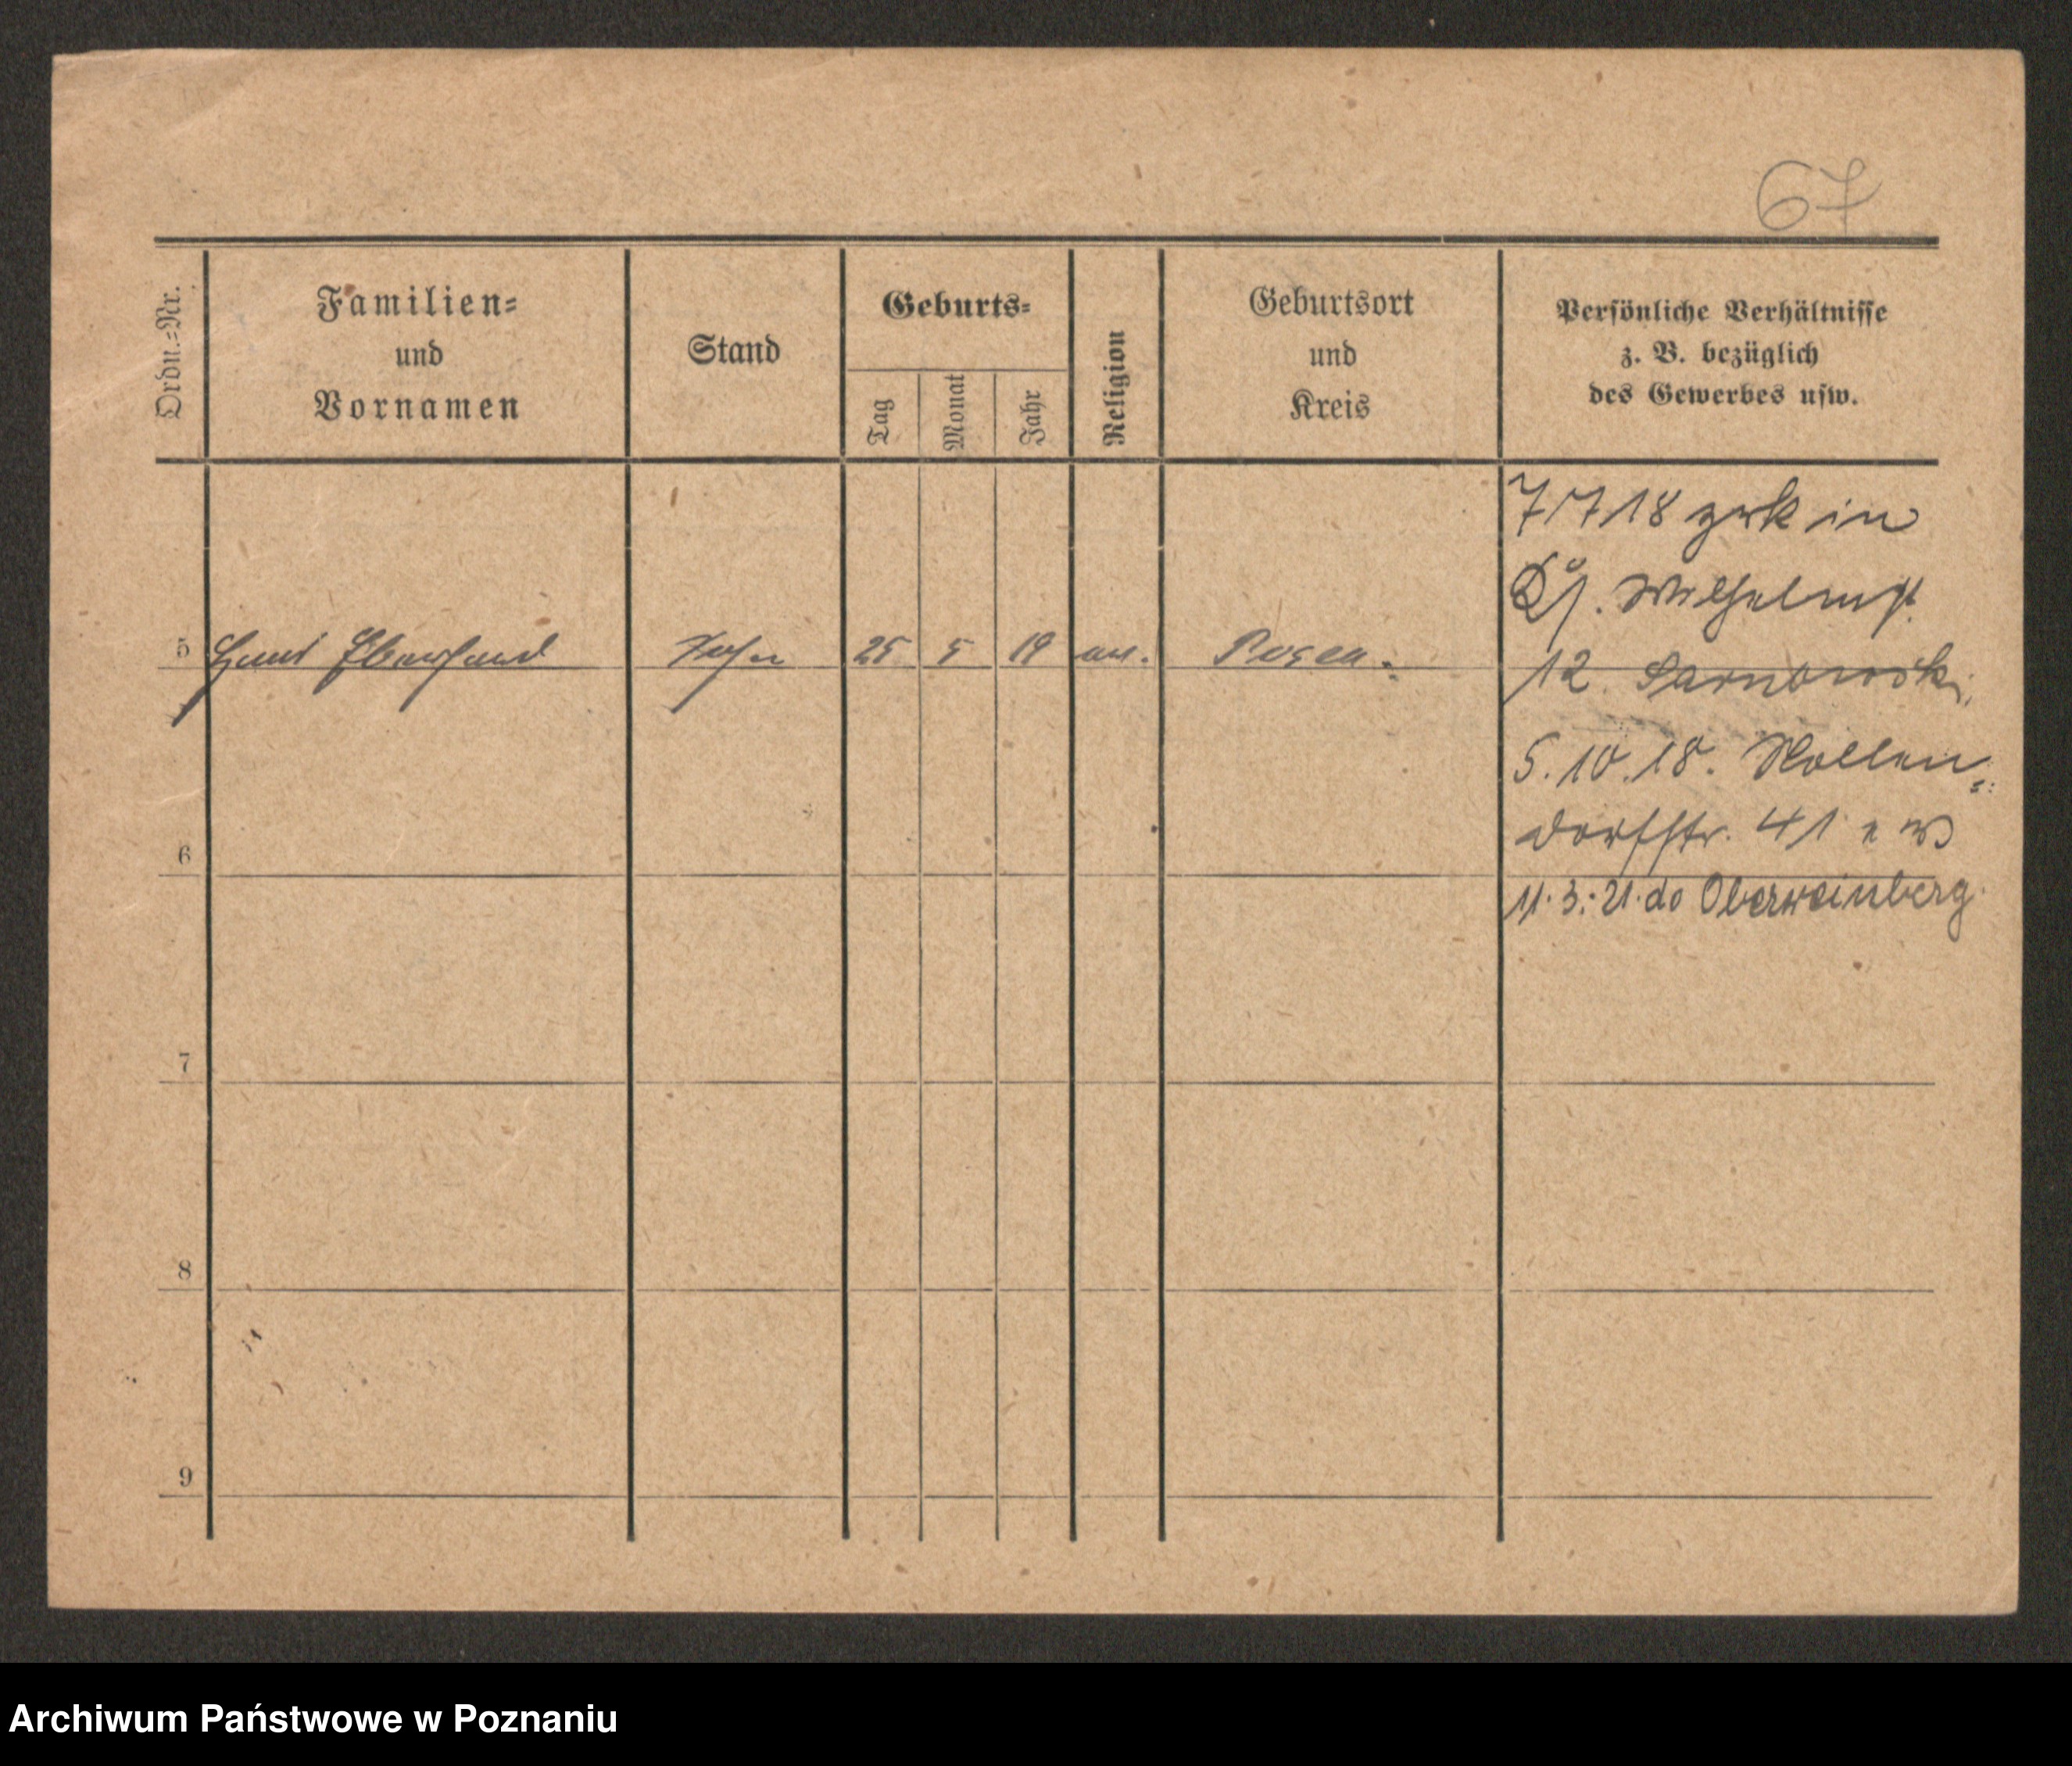 67
Ordn.=Nr.
Familien=
und
Vornamen
Stand
Geburts=
Tag
Monat
Jahr
Religion
Geburtsort
und
Kreis
Persönliche Verhältnisse
z. B. bezüglich
des Gewerbes usw.
7/7 18 zrk in
Wilhelmst.
5 Hans Eberhard Sohn 25 5 19 Posen.
12. Sarnowski,
5.10.18. Nollen=
dorfstr. 41
6
11.3.21. do Oberweinberg
7
8
9
Archiwum Państwowe w Poznaniu